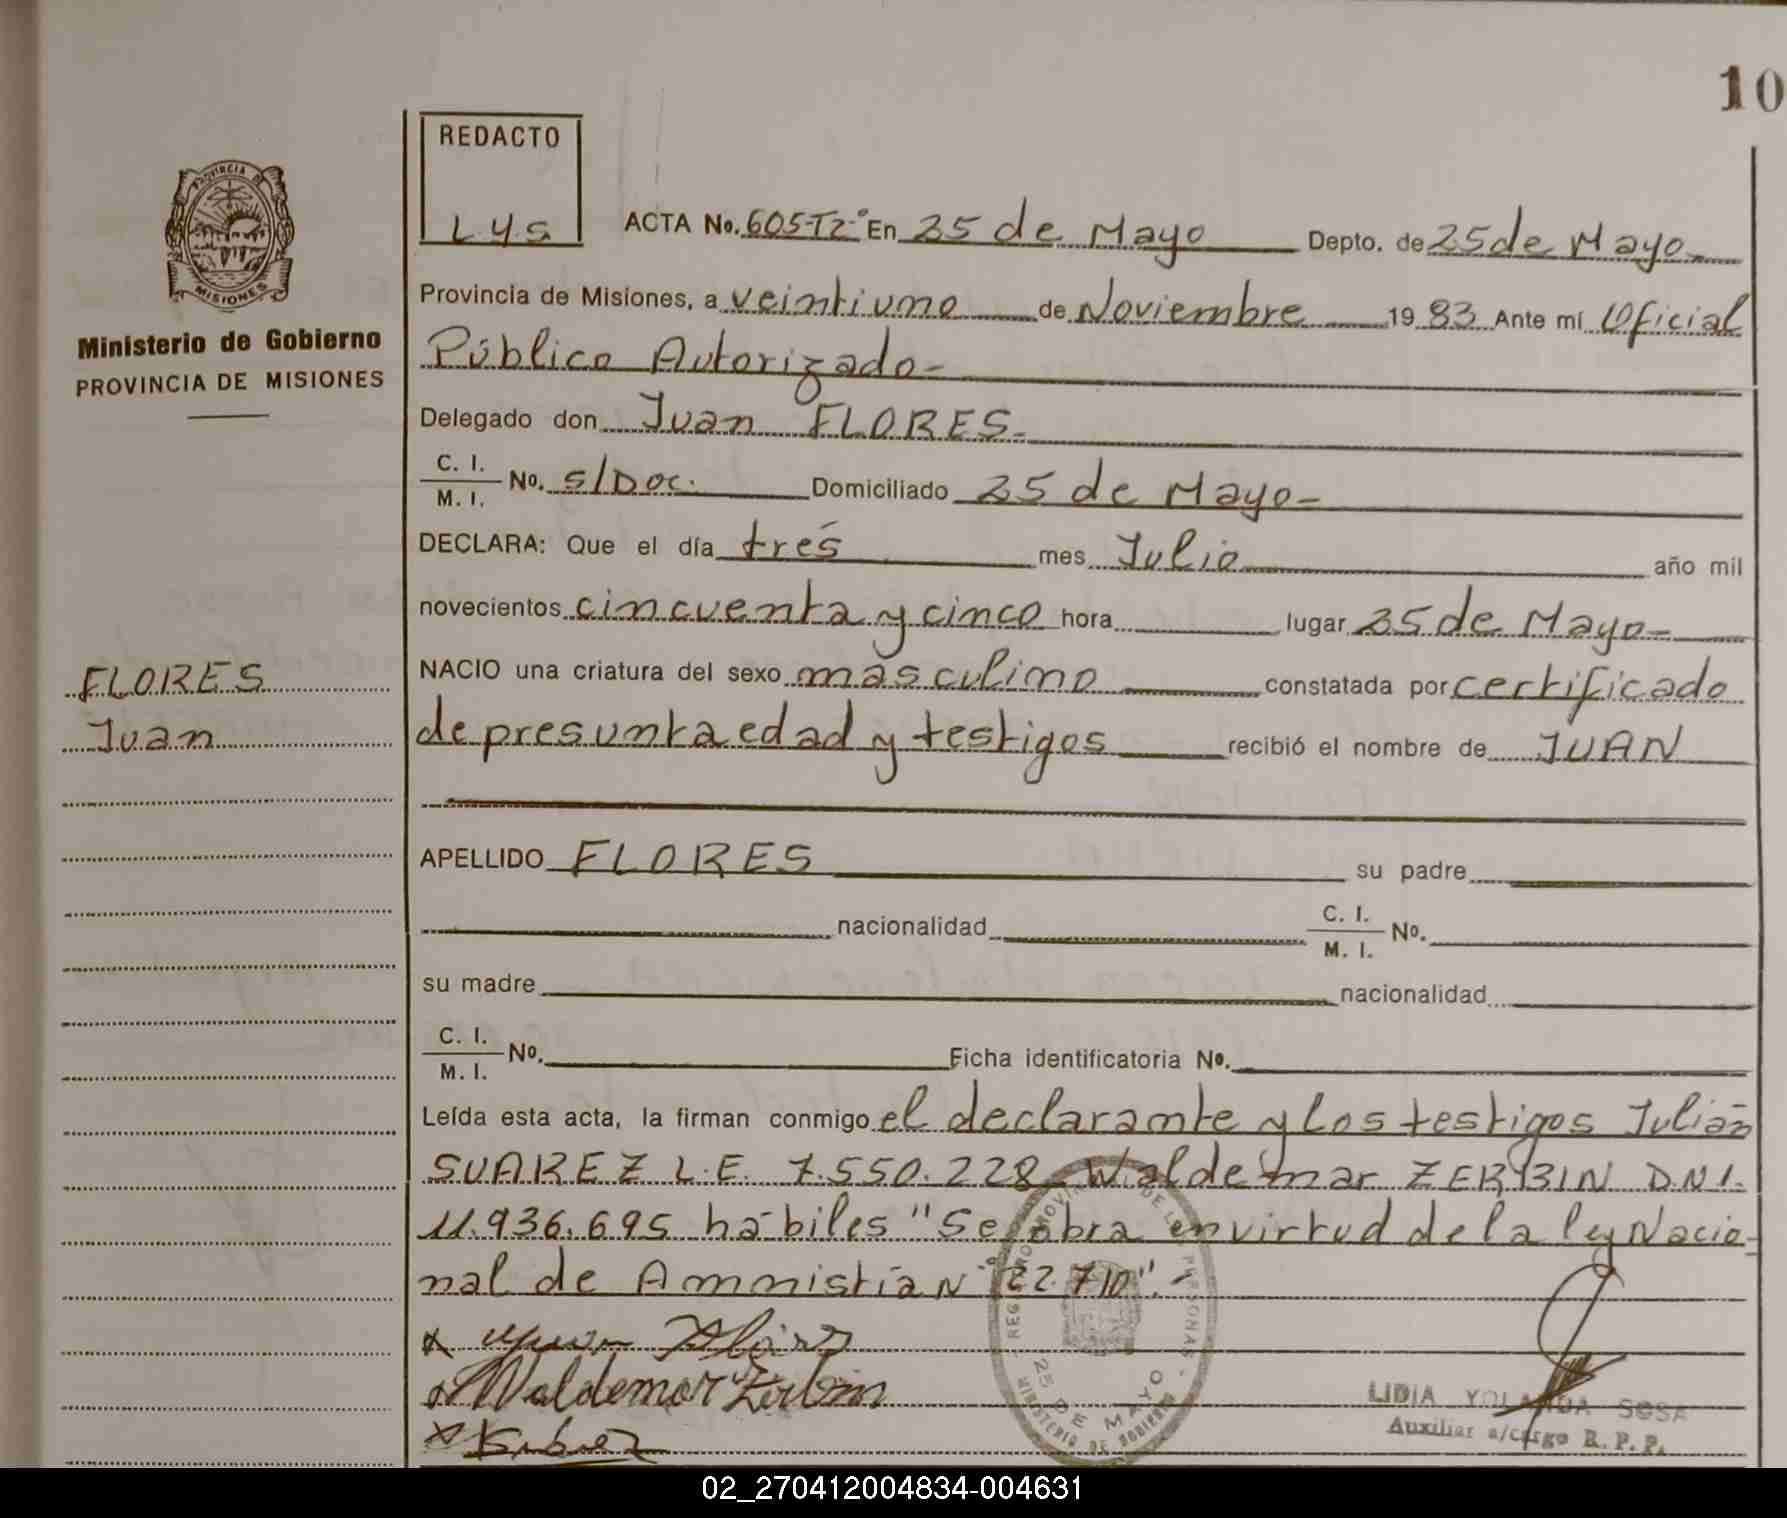 10
REDACTO
L.Y.S.
PROVINCIA DE
MISIONES
Ministerio de Gobierno
PROVINCIA DE MISIONES
ACTA No. 605-T2-° En 25 de Mayo Depto. de 25 de Mayo
Provincia de Misiones, a veintiuno de Noviembre 19 83 Ante mí Oficial
Público Autorizado-
Delegado don Juan FLORES-
C. I. / M. I. No. S/Doc. Domiciliado 25 de Mayo-
DECLARA: Que el día tres mes Julio año mil
novecientos cincuenta y cinco hora lugar 25 de Mayo-
FLORES
Juan
NACIO una criatura del sexo masculino constatada por certificado
de presunta edad y testigos recibió el nombre de JUAN
APELLIDO FLORES su padre
nacionalidad C. I. / M. I. No.
su madre nacionalidad
C. I. / M. I. No. Ficha identificatoria No.
Leída esta acta, la firman conmigo el declarante y los testigos Julián
SUAREZ L.E. 7.550.228 Waldemar ZERBIN D.N.I.
11.936.695 hábiles "Se labra en virtud de la ley Nacio-
nal de Ammistía N° 22.710"-
x Juan Flores
x Waldemar Zerbin
x
25 DE MAYO
MINISTERIO DE GOBIERNO
LIDIA YOLANDA SOSA
Auxiliar a/cargo R. P. P.
02_270412004834-004631